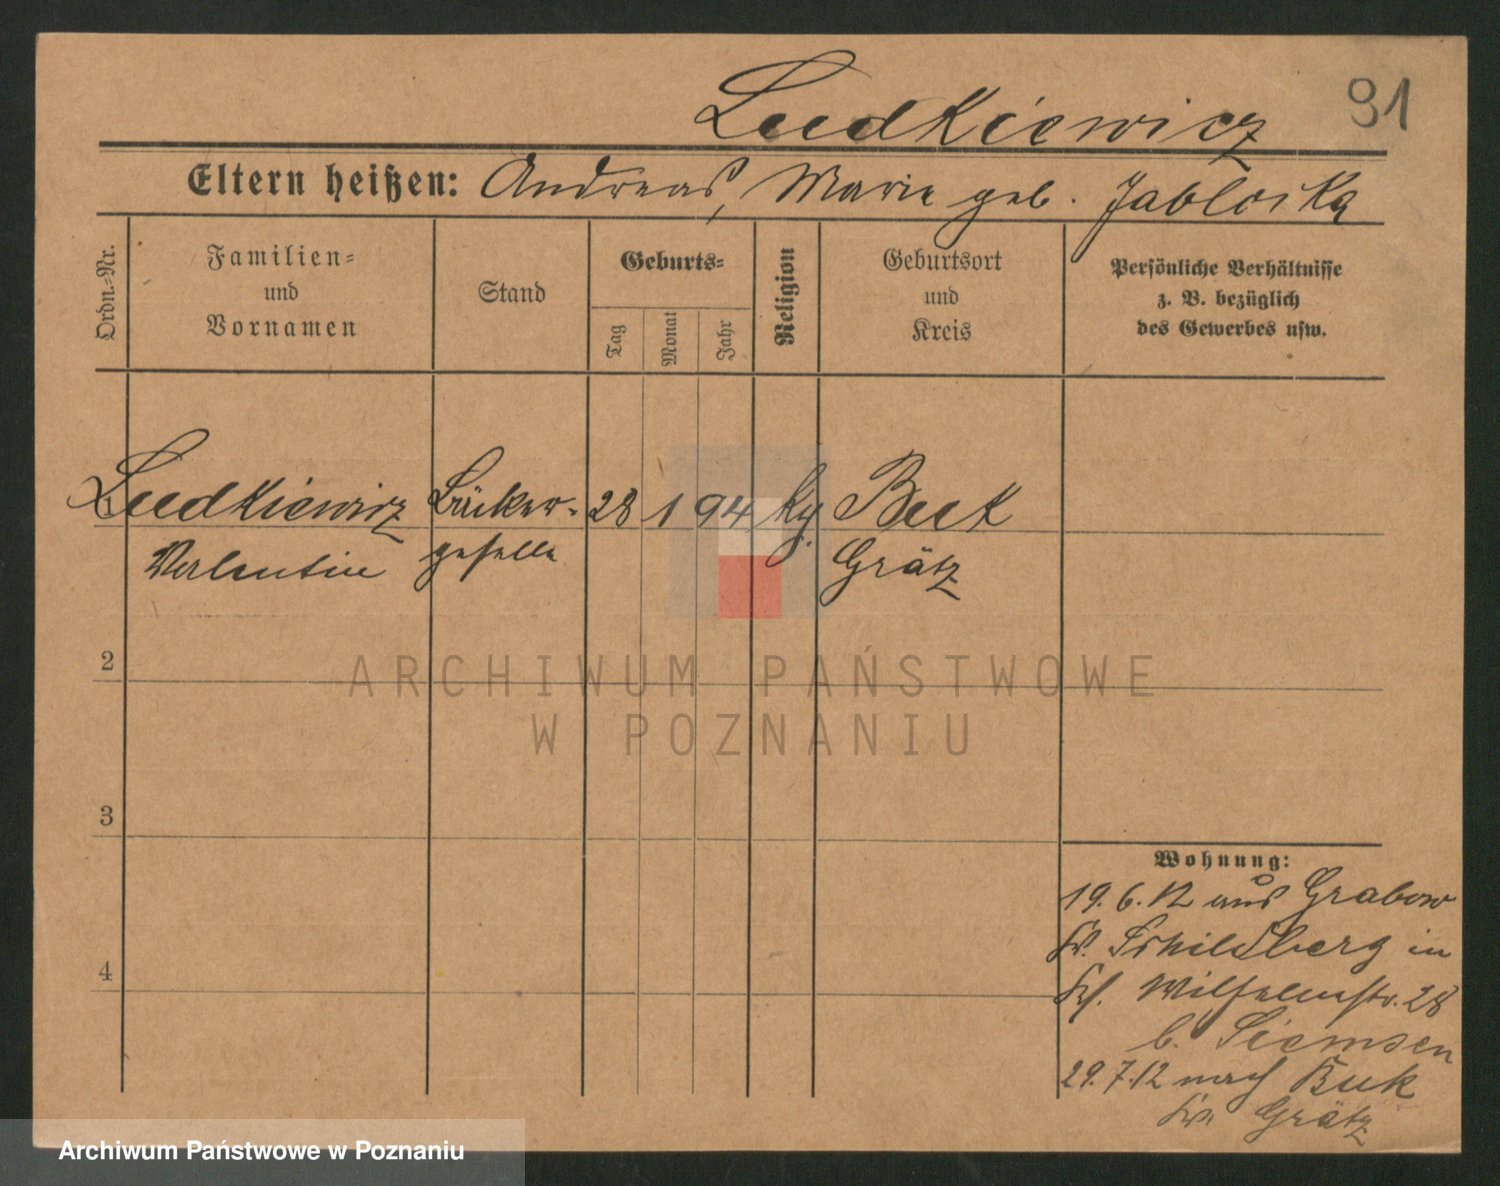 Ludkiewicz 91
Eltern heißen: Andreas, Marie geb. Jabloska
Ordn.-Nr.
Familien- und Vornamen
Stand
Geburts-
Tag
Monat
Jahr
Religion
Geburtsort und Kreis
Persönliche Verhältnisse
z. B. bezüglich
des Gewerbes usw.
Ludkiewicz Bäcker- 28 1 94 Buk
Valentin geselle Grätz
2
ARCHIWUM PAŃSTWOWE
W POZNANIU
3
4
Wohnung:
19. 6. 12 aus Grabow
Kr. Schildberg in
Wilhelmstr. 28
b. Siemsen
29. 7. 12 nach Buk
Kr. Grätz
Archiwum Państwowe w Poznaniu